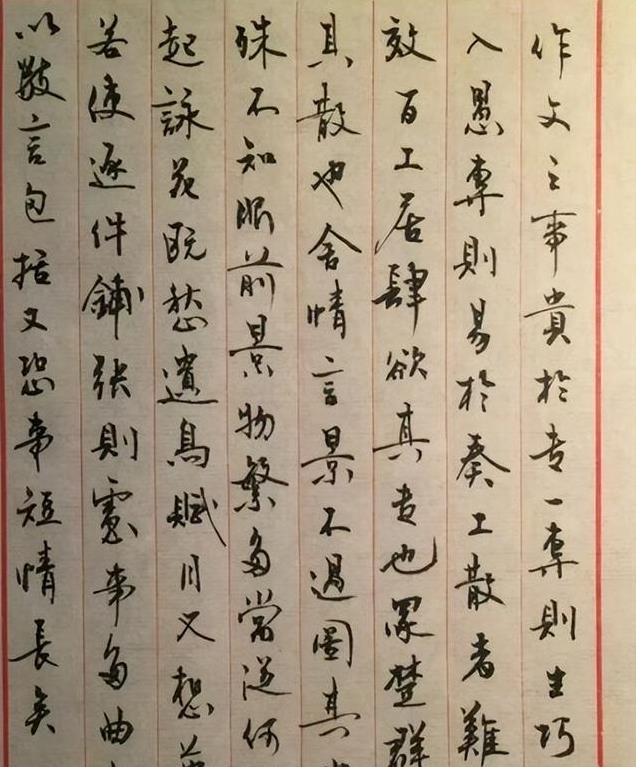 作文之事貴於专一專則生巧
入愚專則易於奏工散者難
效百工居肆欲其专也眾楚群
其散也舍情言景不過圖其
殊不知眼前景物繁多當從何
起詠花既愁遺鳥賦月又想
若使逐件鋪張則慮事多曲
以數言包括又恐事短情長矣